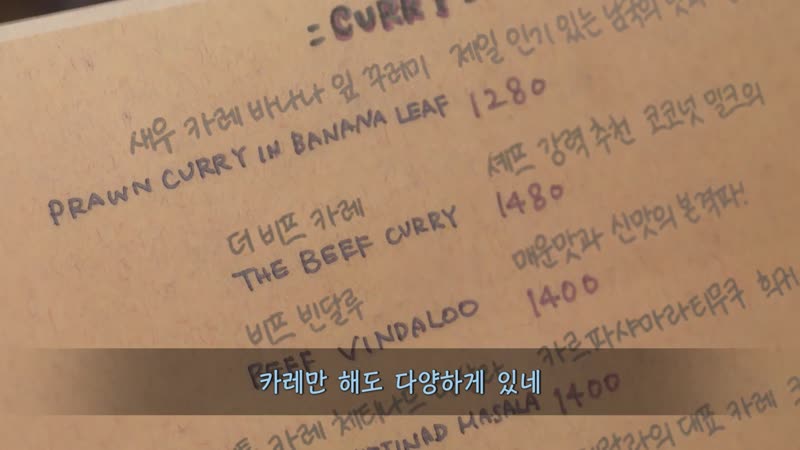 = CURRY
새우 카레 바나나 잎 꾸러미 제일 인기 있는 남국의 맛
PRAWN CURRY IN BANANA LEAF 1280
더 비프 카레 셰프 강력 추천 코코넛 밀크의
THE BEEF CURRY 1480
비프 빈달루 매운맛과 신맛의 본격파!
BEEF VINDALOO 1400
카레 체티나드
MASALA 1400
대표 카레
카레만 해도 다양하게 있네